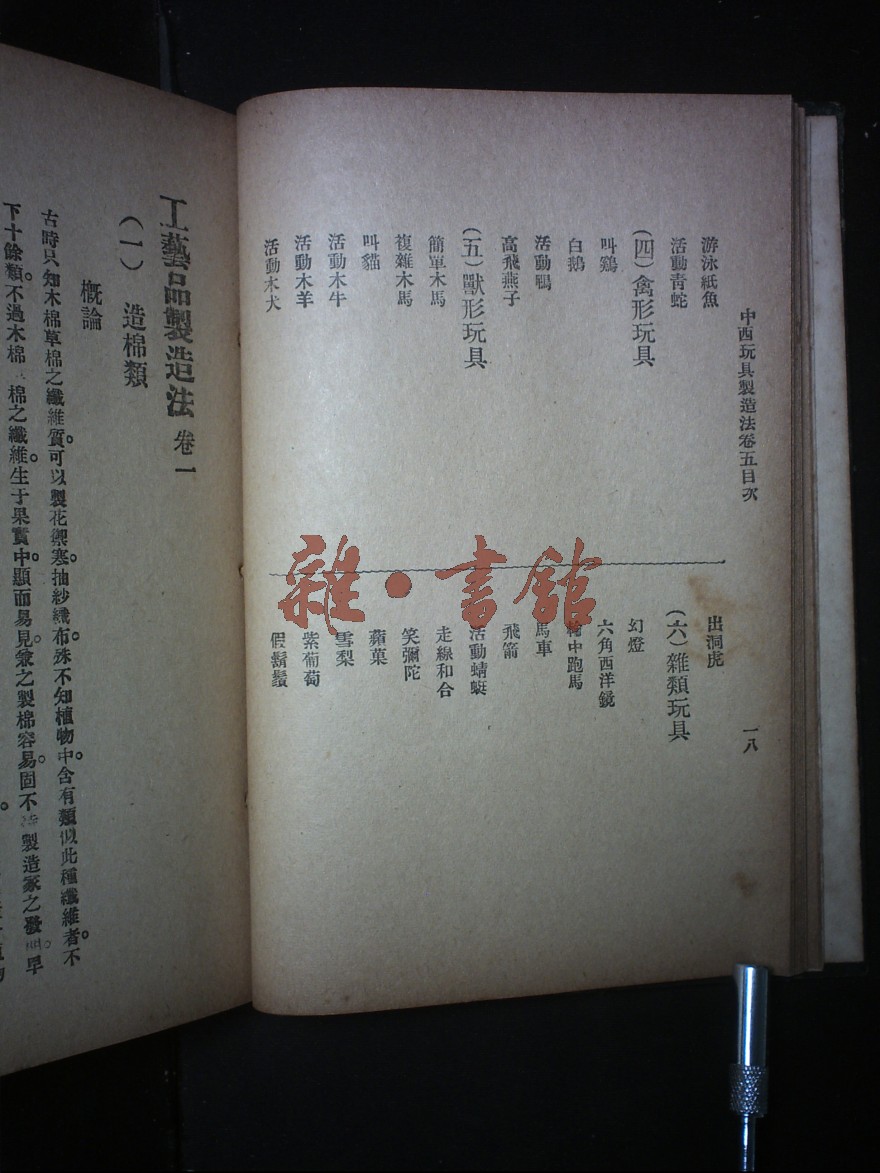 中西玩具製造法卷五目次
一八
游泳紙魚
活動青蛇
(四)禽形玩具
叫鷄
白鵝
活動鴨
高飛燕子
(五)獸形玩具
簡單木馬
複雜木馬
叫貓
活動木牛
活動木羊
活動木犬
出洞虎
(六)雜類玩具
幻燈
六角西洋鏡
中跑馬
馬車
飛箭
活動蜻蜓
走線和合
笑彌陀
蘋菓
雪梨
紫葡萄
假鬍鬚
雜·書館
工藝品製造法 卷一
(一) 造棉類
概論
古時只知木棉草棉之纖維質。可以製花禦寒。抽紗織布。殊不知植物中含有類似此種纖維者。不
下十餘類。不過木棉 棉之纖維生于果實中。顯而易見。兼之製棉容易。固不 製造家之發 。早